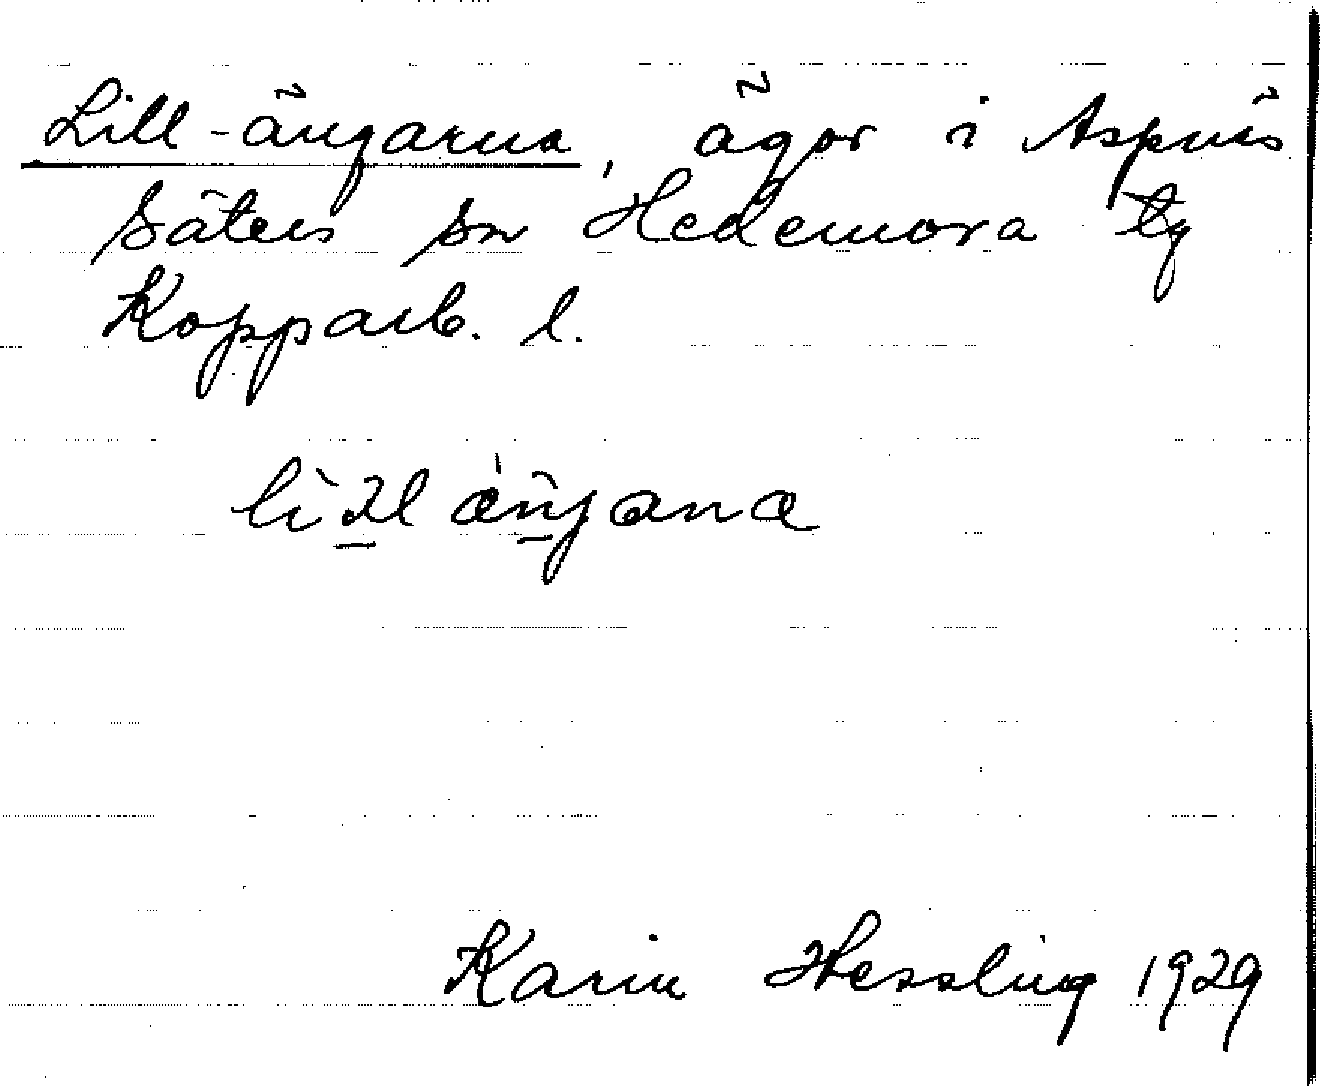 Lill-ängarna, ägor i Aspnäs
Säters sn Hedemora tg
Kopparb. l.
Karin Hessling 1929